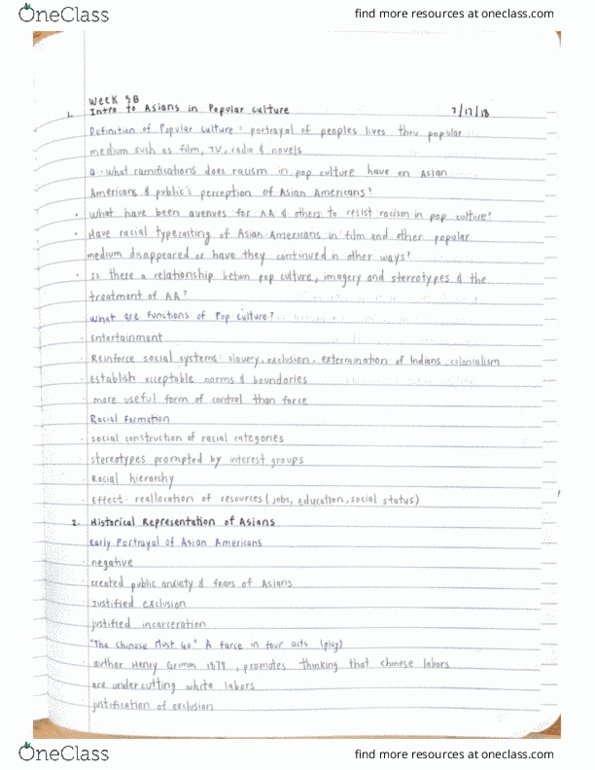 OneClass
find more resources at oneclass.com
Week 5B
1. Intro to Asians in Popular Culture 7/17/18
Definition of Popular Culture: portrayal of peoples lives thru popular
medium such as film, TV, radio & novels
Q. What ramifications does racism in pop culture have on Asian
Americans & public's perception of Asian Americans?
· What have been avenues for AA & others to resist racism in pop culture?
· Have racial typecasting of Asian Americans in film and other popular
medium disappeared or have they continued in other ways?
· Is there a relationship betwn pop culture, imagery and stereotypes & the
treatment of AA?
What are functions of Pop Culture?
· Entertainment
· Reinforce social systems: slavery, exclusion, extermination of Indians, colonialism
· Establish acceptable norms & boundaries
· more useful form of control than force
Racial Formation
· social construction of racial categories
· stereotypes prompted by interest groups
· Racial hierarchy
· Effect: reallocation of resources (jobs, education, social status)
2. Historical Representation of Asians
Early Portrayal of Asian Americans
· negative
· created public anxiety & fears of Asians
· Justified exclusion
· justified incarceration
"The Chinese Must Go" A farce in four acts (play)
· author Henry Grimm 1879, promotes thinking that chinese labors
are undercutting white labors
· justification of exclusion
OneClass
find more resources at oneclass.com